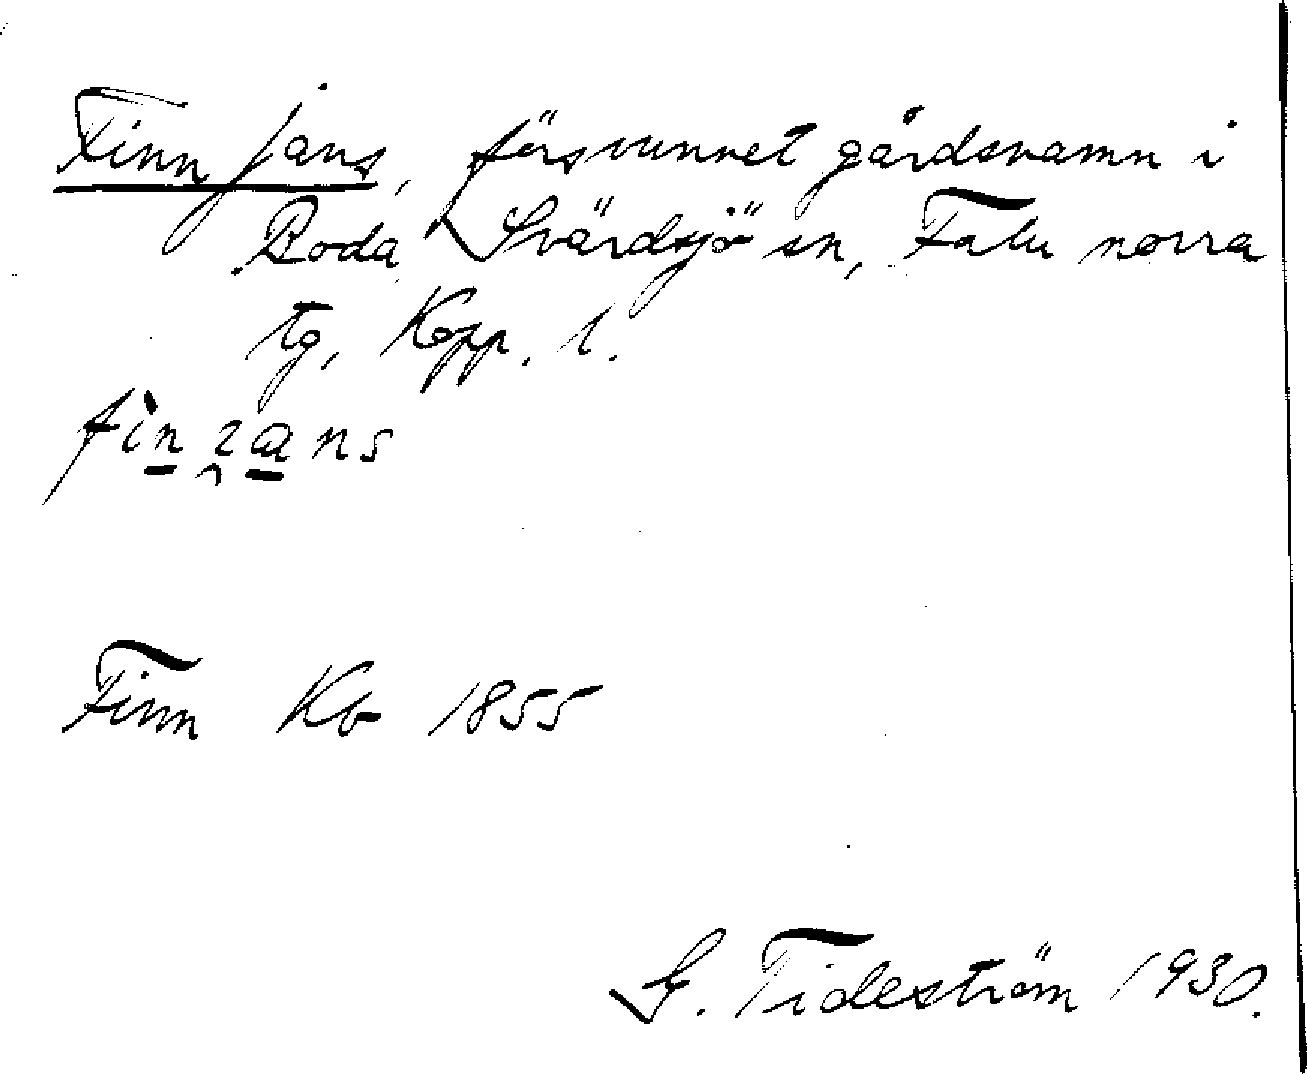 Finn jans, försvunnet gårdsnamn i
Boda, Svärdsjö sn, Falu norra
tg, Kopp. l.
Finn Kb 1855
G. Tideström 1930.